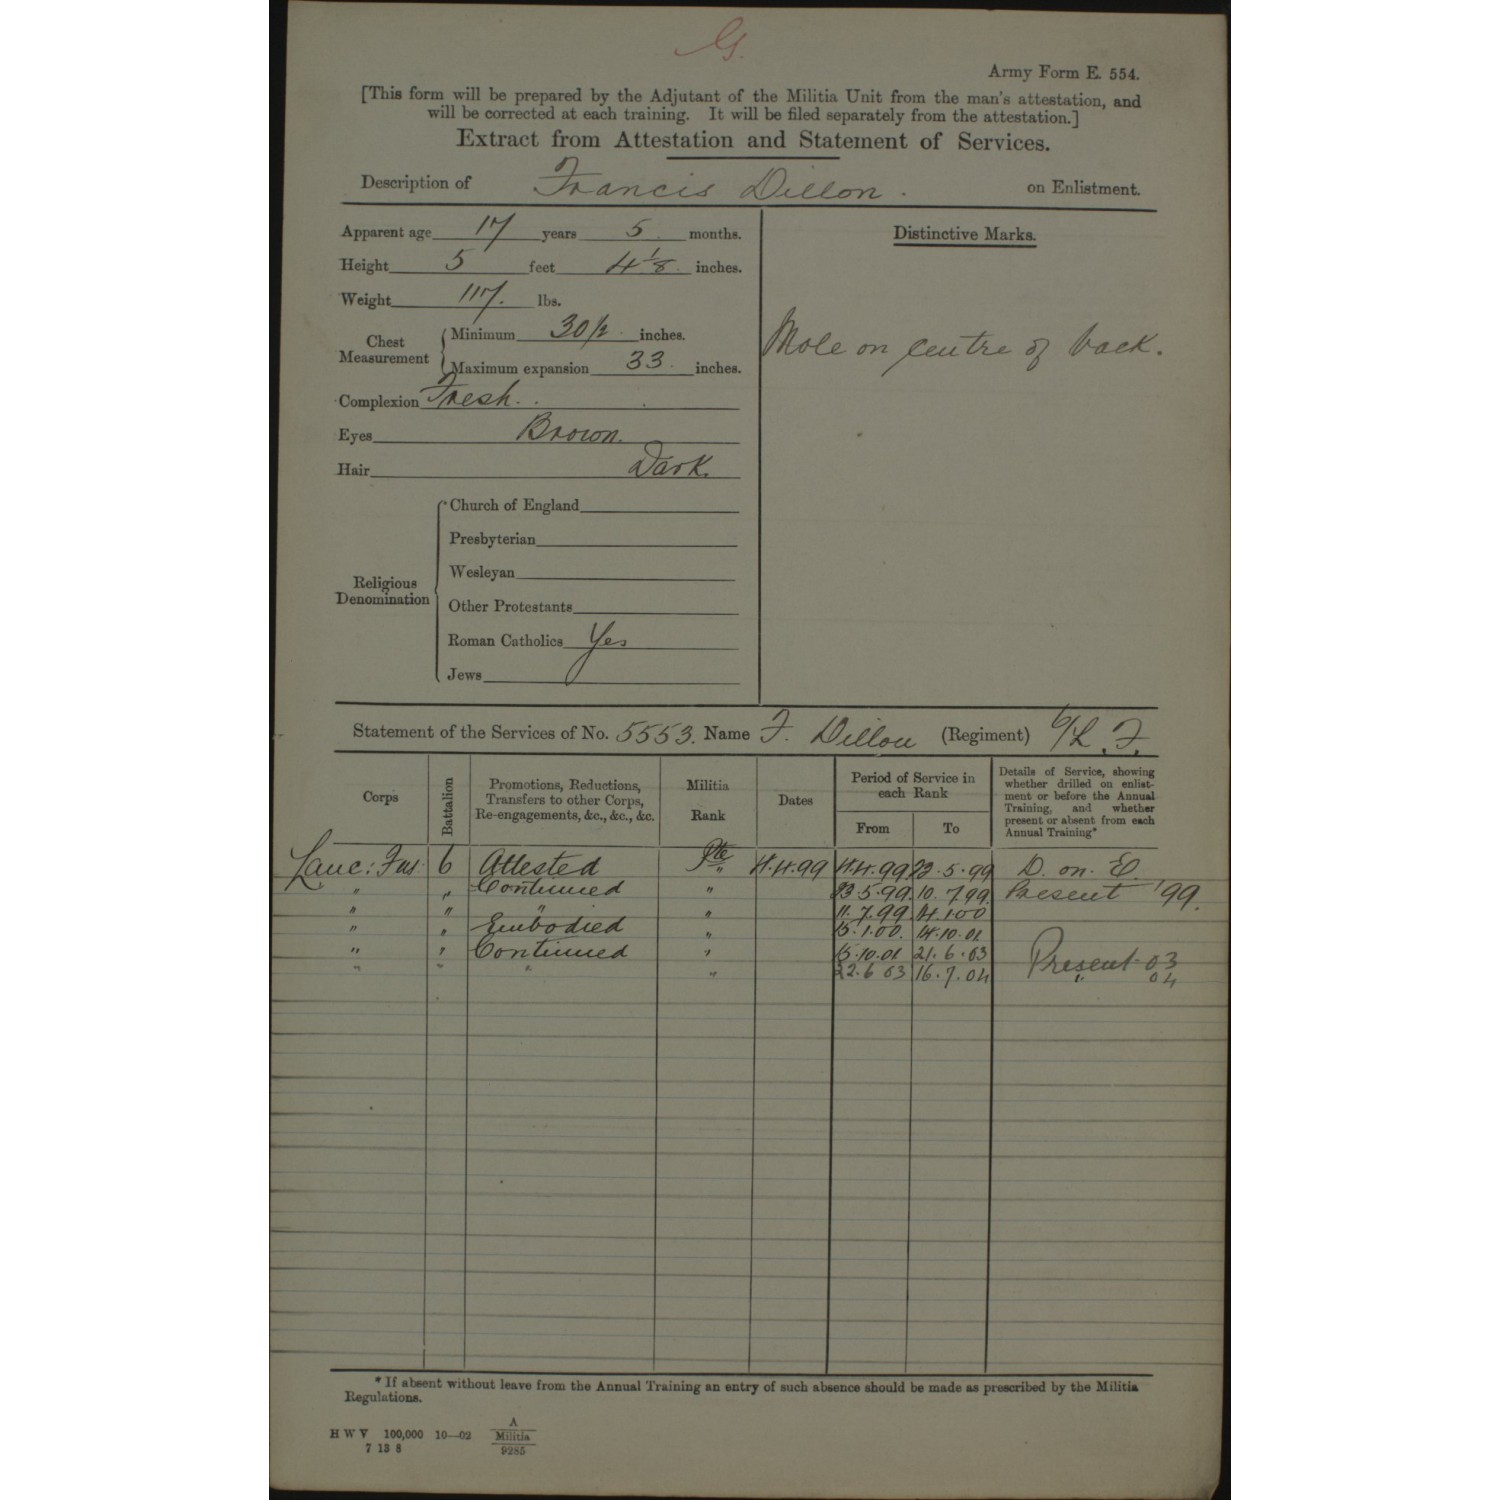 G.
Army Form E. 554.
[This form will be prepared by the Adjutant of the Militia Unit from the man's attestation, and
will be corrected at each training. It will be filed separately from the attestation.]
Extract from Attestation and Statement of Services.
Description of Francis Dillon. on Enlistment.
Apparent age 17 years 5 months.
Height 5 feet 4 1/8 inches.
Weight 117. lbs.
Chest Measurement
Minimum 30 1/2 inches.
Maximum expansion 33 inches.
Complexion Fresh.
Eyes Brown.
Hair Dark.
Religious Denomination
Church of England
Presbyterian
Wesleyan
Other Protestants
Roman Catholics Yes
Jews
Distinctive Marks.
Mole on centre of back.
Statement of the Services of No. 5553. Name F. Dillon (Regiment) 6/L. F.
Corps
Battalion
Promotions, Reductions,
Transfers to other Corps,
Re-engagements, &c., &c., &c.
Militia
Rank
Dates
Period of Service in
each Rank
From To
Details of Service, showing
whether drilled on enlist-
ment or before the Annual
Training, and whether
present or absent from each
Annual Training*
Lanc: Fus. 6 Attested Pte 4.4.99 4.4.99 22.5.99 D. on. E.
" " Continued " 23.5.99 10.7.99 Present '99.
" " " " 11.7.99 14.1.00
" " Embodied " 15.1.00. 14.10.01
" " Continued " 15.10.01 21.6.03 Present 03
" " " " 22.6 03 16.7.04 " 04
* If absent without leave from the Annual Training an entry of such absence should be made as prescribed by the Militia
Regulations.
H W V 100,000 10—02 A
Militia
7 13 8 9285